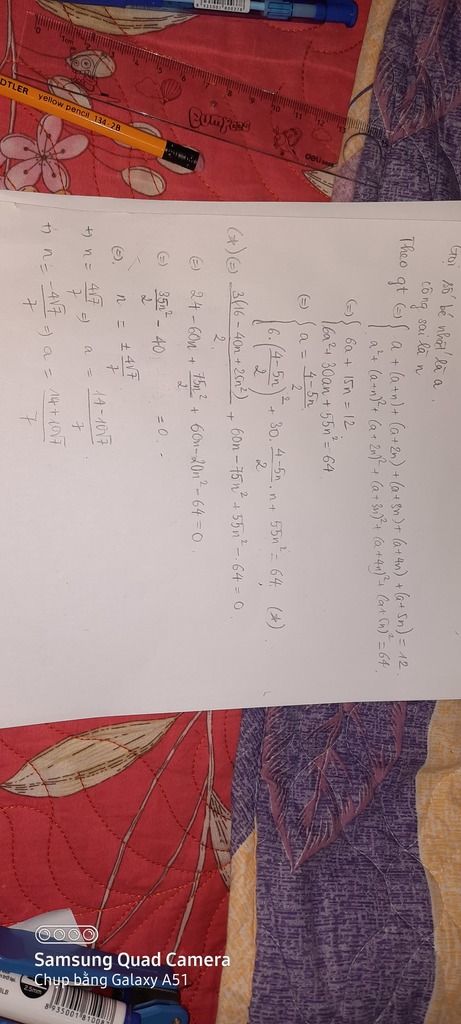 Gọi số bé nhất là a.
công sai là n
Theo gt (=) { a + (a+n) + (a+2n) + (a+3n) + (a+4n) + (a+5n) = 12.
a² + (a+n)² + (a+2n)² + (a+3n)² + (a+4n)² + (a+5n)² = 64.
(=) { 6a + 15n = 12
6a² + 30an + 55n² = 64
(=) { a = \frac{4-5n}{2}
6.(\frac{4-5n}{2})² + 30.\frac{4-5n}{2}.n + 55n² = 64. (*)
(*) (=) \frac{3(16-40n+25n²)}{2} + 60n - 75n² + 55n² - 64 = 0.
(=) 24 - 60n + \frac{75n²}{2} + 60n - 20n² - 64 = 0.
(=) \frac{35n²}{2} - 40 = 0.
(=). n = ± \frac{4√7}{7}
+) n = \frac{4√7}{7} => a = \frac{14-10√7}{7}.
+) n = \frac{-4√7}{7} => a = \frac{14+10√7}{7}
yellow pencil 134-2B
deli
Samsung Quad Camera
Chụp bằng Galaxy A51
2.5mm
8 935001 81008